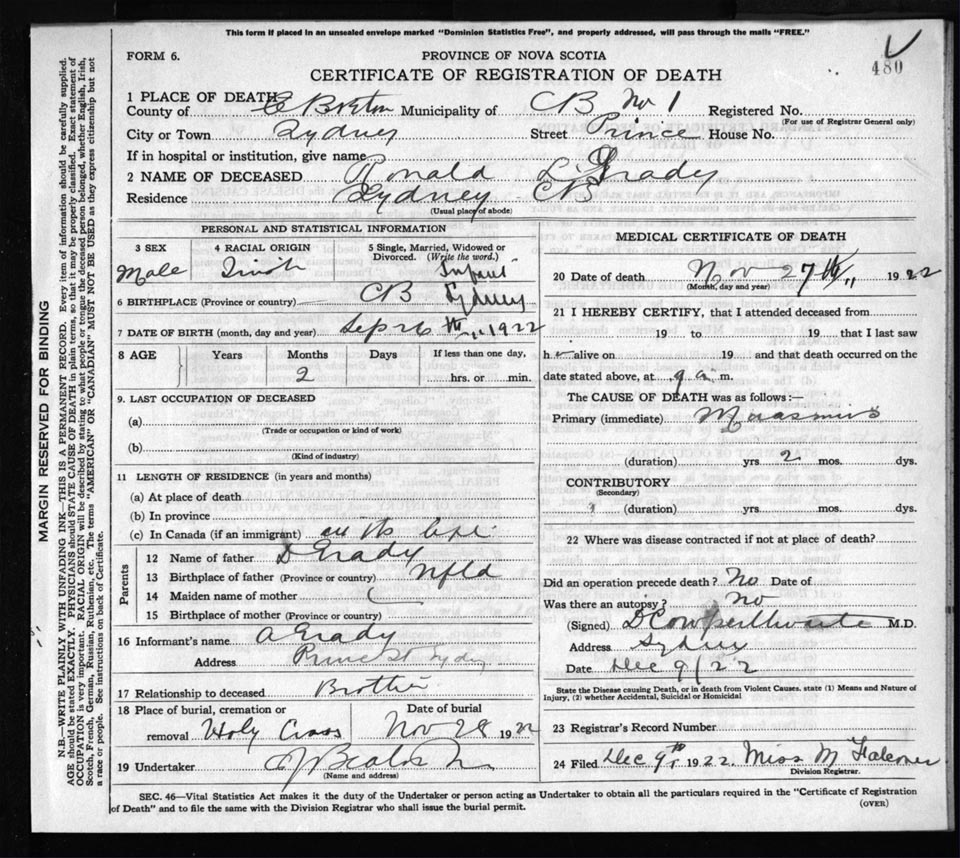 This form if placed in an unsealed envelope marked "Dominion Statistics Free", and properly addressed, will pass through the mails "FREE."
FORM 6.
PROVINCE OF NOVA SCOTIA
480
CERTIFICATE OF REGISTRATION OF DEATH
1 PLACE OF DEATH
County of C Breton Municipality of CB No 1 Registered No.
(For use of Registrar General only)
City or Town Sydney Street Prince House No.
If in hospital or institution, give name
2 NAME OF DECEASED Ronald Grady
Residence Sydney CB
(Usual place of abode)
PERSONAL AND STATISTICAL INFORMATION
3 SEX 4 RACIAL ORIGIN 5 Single, Married, Widowed or Divorced. (Write the word.)
Male Irish Infant
6 BIRTHPLACE (Province or country) CB Sydney
7 DATE OF BIRTH (month, day and year) Sep 26th 1922
8 AGE Years Months Days If less than one day,
2 hrs. or min.
9. LAST OCCUPATION OF DECEASED
(a)
(Trade or occupation or kind of work)
(b)
(Kind of industry)
11 LENGTH OF RESIDENCE (in years and months)
(a) At place of death
(b) In province
(c) In Canada (if an immigrant)
Parents
12 Name of father D Grady
13 Birthplace of father (Province or country) Nfld
14 Maiden name of mother
15 Birthplace of mother (Province or country)
16 Informant's name A Grady
Address Prince St Sydney
17 Relationship to deceased Brother
18 Place of burial, cremation or Date of burial
removal Holy Cross Nov 28 1922
19 Undertaker
(Name and address)
MEDICAL CERTIFICATE OF DEATH
20 Date of death Nov 27th 1922
(Month, day and year)
21 I HEREBY CERTIFY, that I attended deceased from
19 to 19 that I last saw
h alive on 19 and that death occurred on the
date stated above, at 9 a. m.
The CAUSE OF DEATH was as follows:—
Primary (immediate) Marasmus
(duration) yrs. 2 mos. dys.
CONTRIBUTORY
(Secondary)
(duration) yrs. mos. dys.
22 Where was disease contracted if not at place of death?
Did an operation precede death? No Date of
Was there an autopsy? No
(Signed) D Cowperthwaite M.D.
Address Sydney
Date Dec 9/22
State the Disease causing Death, or in death from Violent Causes, state (1) Means and Nature of Injury, (2) whether Accidental, Suicidal or Homicidal
23 Registrar's Record Number
24 Filed Dec 9th 1922. Miss M Falconer
Division Registrar.
SEC. 46—Vital Statistics Act makes it the duty of the Undertaker or person acting as Undertaker to obtain all the particulars required in the "Certificate of Registration
of Death" and to file the same with the Division Registrar who shall issue the burial permit.
(OVER)
MARGIN RESERVED FOR BINDING
N.B.—WRITE PLAINLY WITH UNFADING INK—THIS IS A PERMANENT RECORD. Every item of information should be carefully supplied.
AGE should be stated EXACTLY. PHYSICIANS should STATE CAUSE OF DEATH in plain terms, so that it may be properly classified. Exact statement of
OCCUPATION is very important. RACIAL ORIGIN will be described by stating to what people or tongue the deceased person belonged, whether English, Irish,
Scotch, French, German, Russian, Ruthenian, etc. The terms "AMERICAN" OR "CANADIAN" MUST NOT BE USED as they express citizenship but not
a race or people. See instructions on back of Certificate.